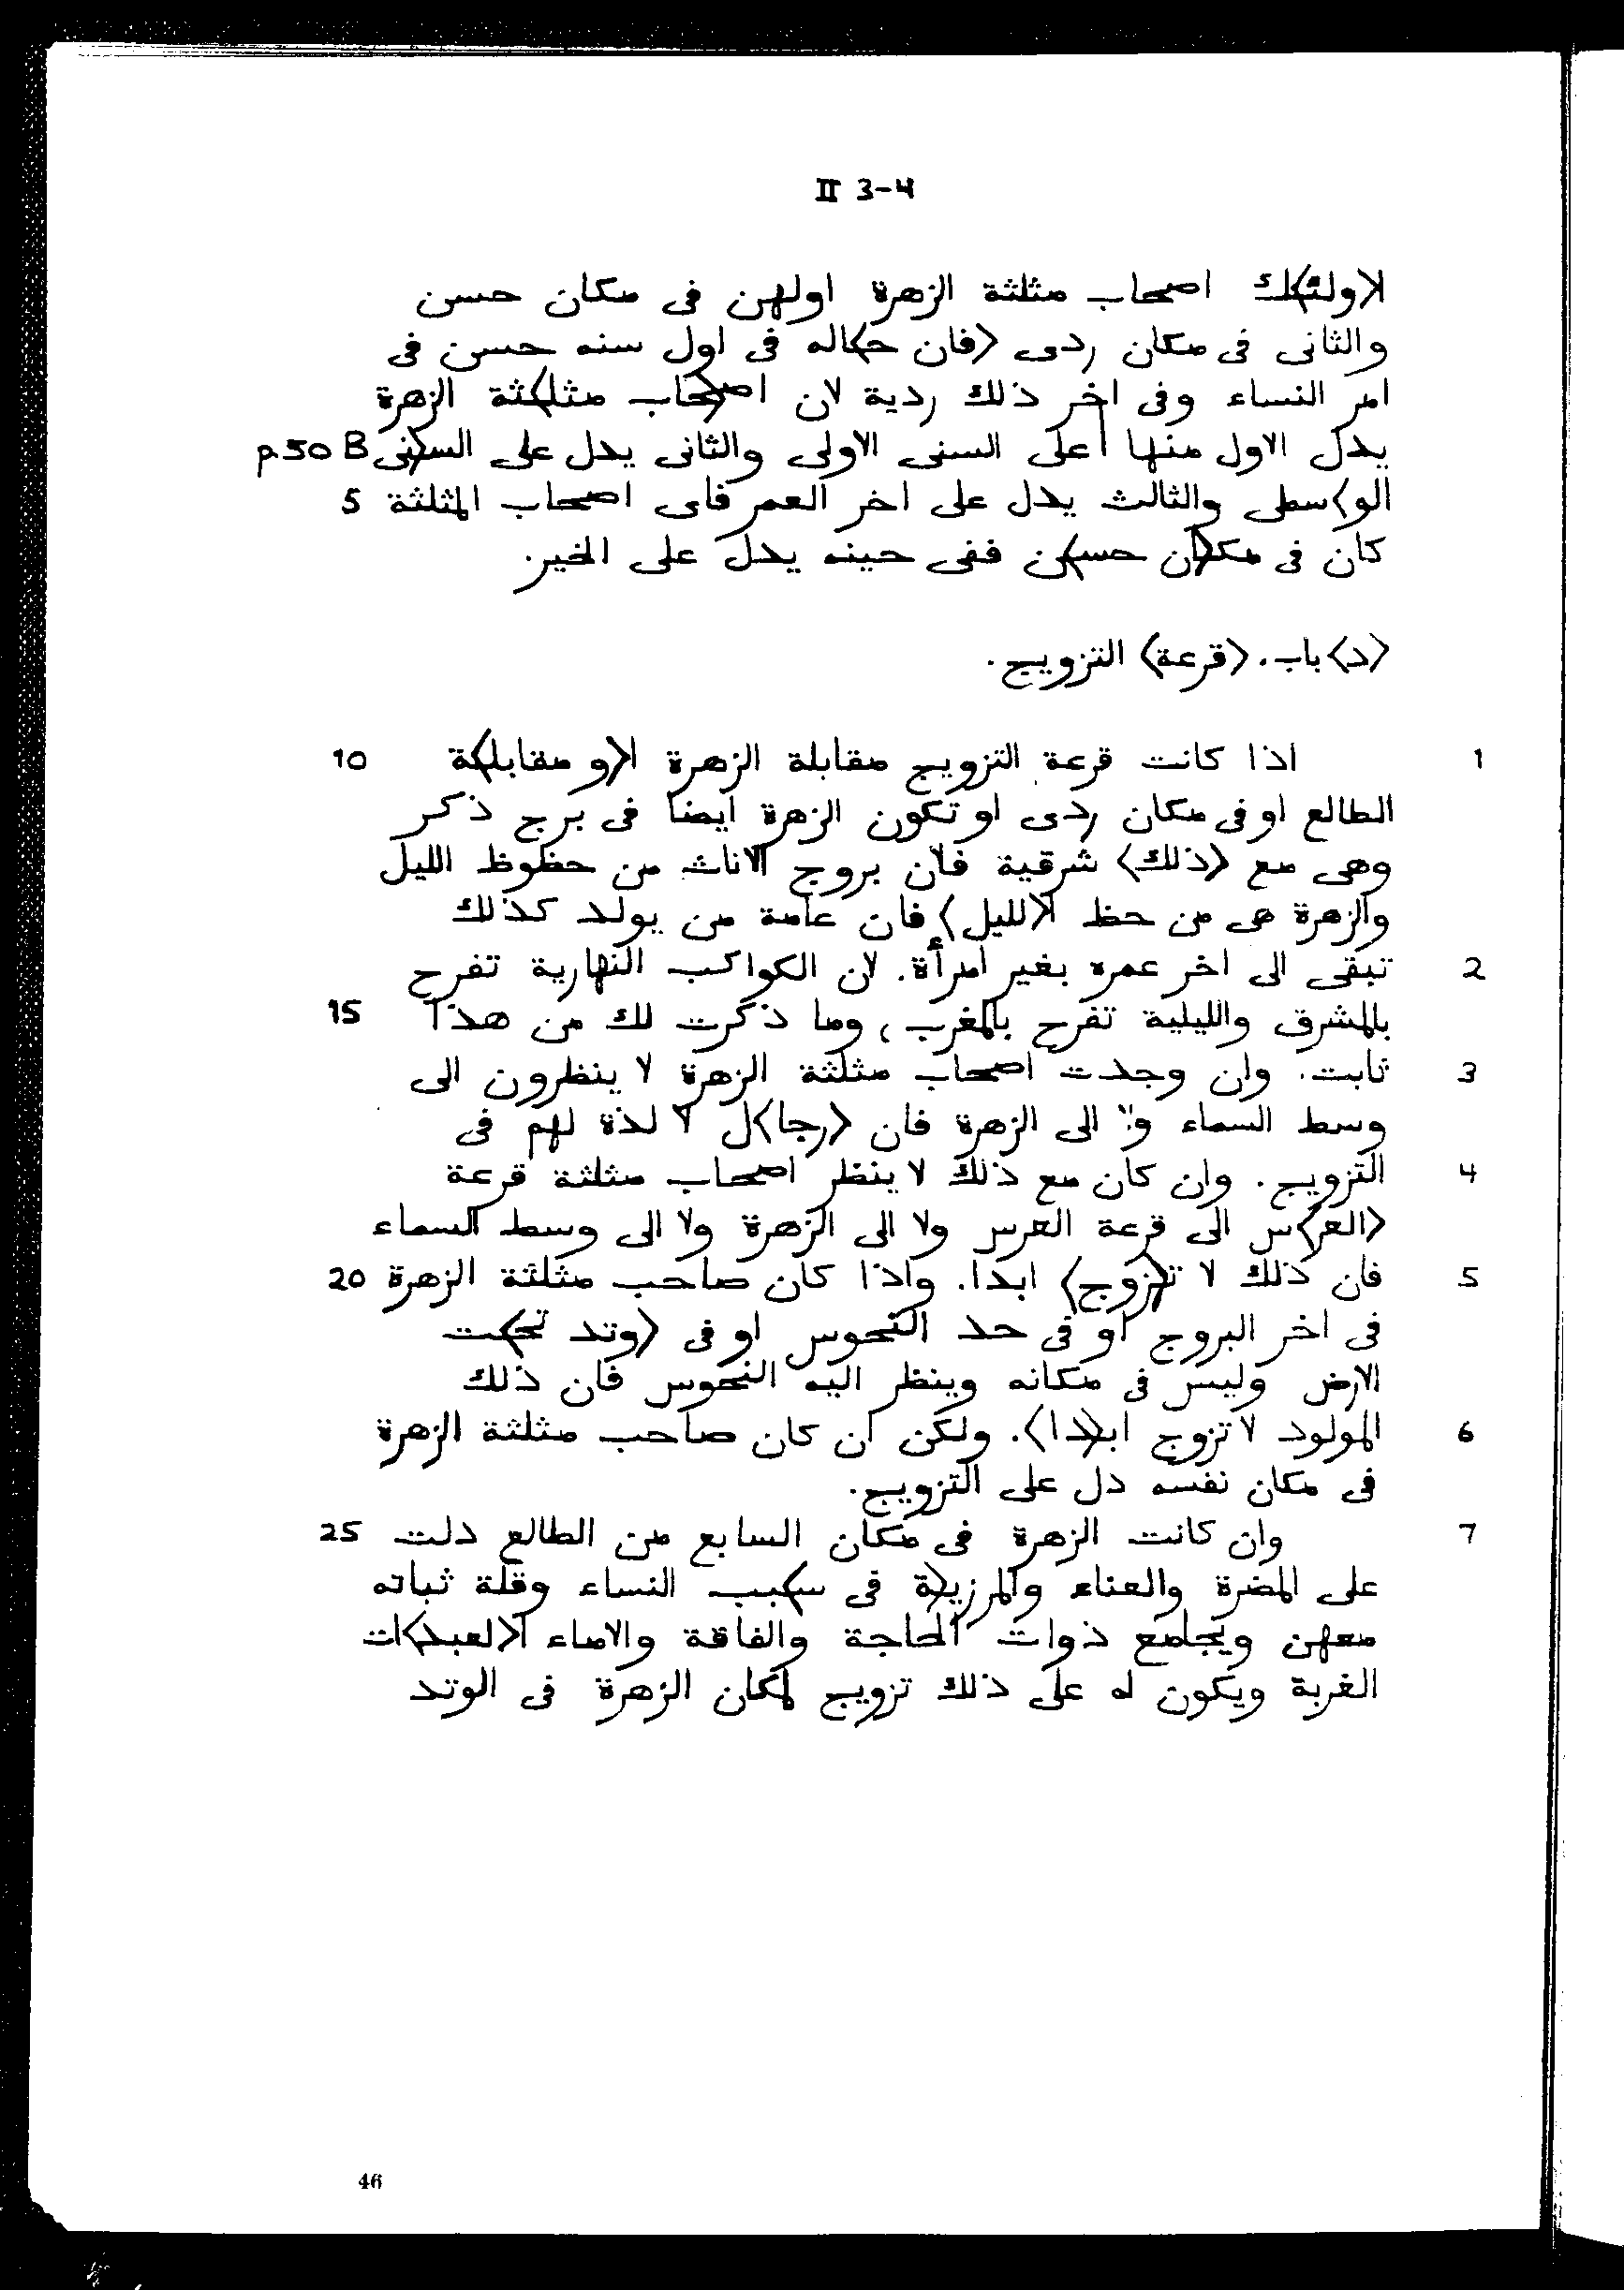 II 3-4
ا<ولئ>ك اصحاب مثلثة الزهرة اولهن فى مكان حسن
والثانى فى مكان ردى <فان ح>اله فى اول سنه حسن فى
امر النساء وفى اخر ذلك ردية لان اص<حاب مثل>ثة الزهرة
يدل الاول منها على السنى الاولى والثانى يدل على الس<نى p.50 B
الو>سطى والثالث يدل على اخر العمر فاى اصحاب المثلثة 5
كان فى مك<ان حس>ن ففى حينه يدل على الخير.
<د> باب. <قرعة> التزويج.
1 اذا كانت قرعة التزويج مقابلة الزهرة ا<و مقابل>ة 10
الطالع او فى مكان ردى او تكون الزهرة ايضا فى برج ذكر
وهى مع <ذلك> شرقية فان بروج الاناث من حظوظ الليل
والزهرة هى من حظ ا<لليل> فان عامة من يولد كذلك
2 تبقى الى اخر عمره بغير امرأة. لان الكواكب النهارية تفرح
بالمشرق والليلية تفرح بالمغرب، وما ذكرت لك من هذا 15
3 ثابت. وان وجدت اصحاب مثلثة الزهرة لا ينظرون الى
وسط السماء ولا الى الزهرة فان <رجا>ل لا لذة لهم فى
4 التزويج. وان كان مع ذلك لا ينظر اصحاب مثلثة قرعة
<العر>س الى قرعة العرس ولا الى الزهرة ولا الى وسط السماء
5 فان ذلك لا ت<زوج> ابدا. واذا كان صاحب مثلثة الزهرة 20
فى اخر البروج او فى حد النحوس او فى <وتد تح>ت
الارض وليس فى مكانه وينظر اليه النحوس فان ذلك
6 المولود لا تزوج اب<دا>. ولكن ان كان صاحب مثلثة الزهرة
فى مكان نفسه دل على التزويج.
7 وان كانت الزهرة فى مكان السابع من الطالع دلت 25
على المضرة والعناء والمرزي<ة فى س>بب النساء وقلة ثباته
معهن ويجامع ذوات الحاجة والفاقة والاماء ا<لعبد>ات
الغربة ويكون له على ذلك تزويج لمكان الزهرة فى الوتد
46